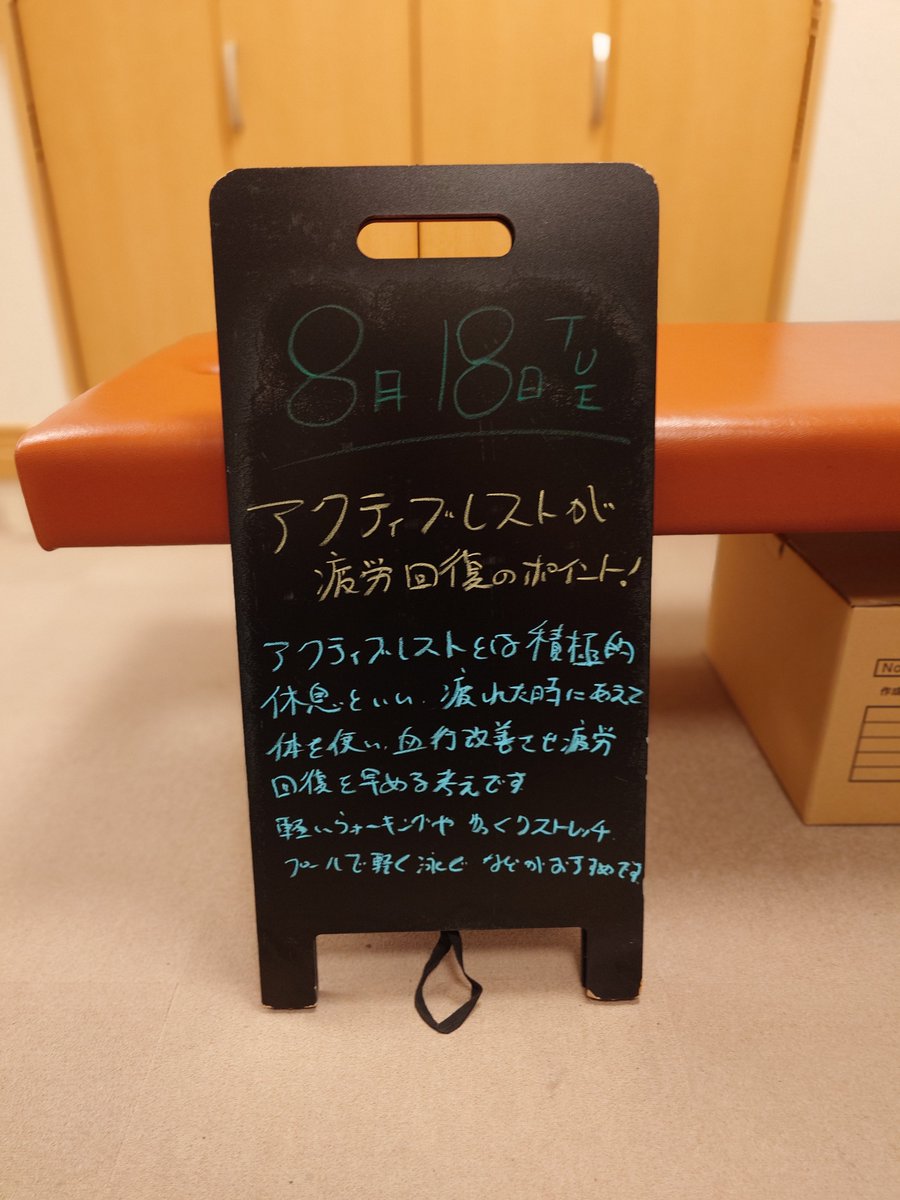 8月18日 TUE
アクティブレストが
疲労回復のポイント!
アクティブレストとは積極的
休息といい、疲れた時にあえて
体を使い、血行改善させ疲労
回復を早める考えです
軽いウォーキングや ゆっくりストレッチ
プールで軽く泳ぐ などがおすすめです
No
作成